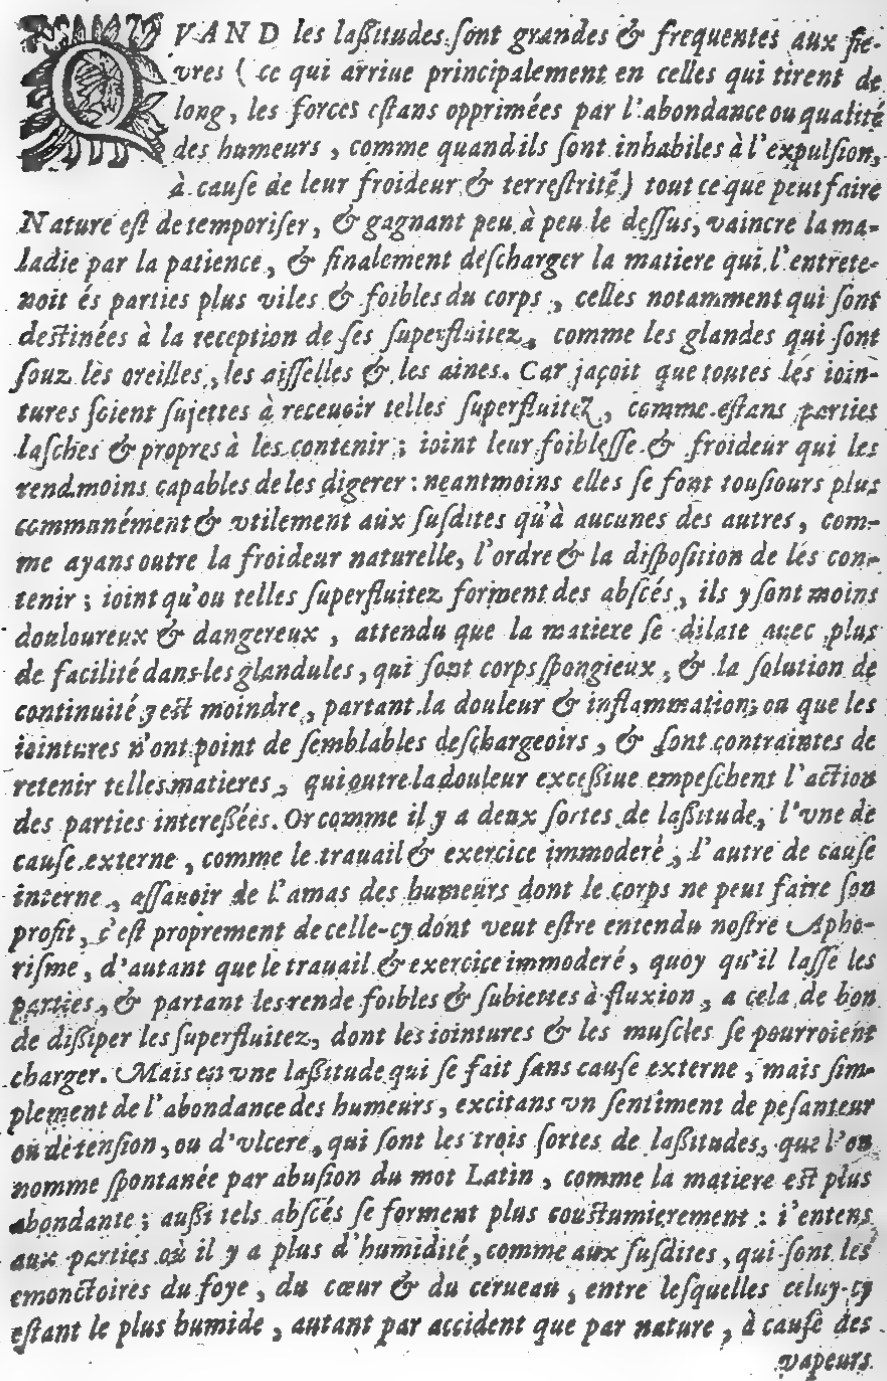 QVAND les laßitudes ſont grandes & frequentes aux fie-
vres ( ce qui arriue principalement en celles qui tirent de
long, les forces eſtans opprimées par l'abondance ou qualité
des humeurs, comme quand ils ſont inhabiles à l'expulſion,
à cauſe de leur froideur & terreſtrité) tout ce que peut faire
Nature eſt de temporiſer, & gagnant peu à peu le deſſus, vaincre la ma-
ladie par la patience, & finalement deſcharger la matiere qui l'entrete-
noit és parties plus viles & foibles du corps, celles notamment qui ſont
deſtinées à la reception de ſes ſuperfluitez, comme les glandes qui ſont
ſouz les oreilles, les aiſſelles & les aines. Car jaçoit que toutes les ioin-
tures ſoient ſujettes à receuoir telles ſuperfluitez, comme eſtans parties
laſches & propres à les contenir; ioint leur foibleſſe & froideur qui les
rend moins capables de les digerer: neantmoins elles ſe font touſiours plus
communément & vtilement aux ſuſdites qu'à aucunes des autres, com-
me ayans outre la froideur naturelle, l'ordre & la diſpoſition de les con-
tenir; ioint qu'ou telles ſuperfluitez forment des abſcés, ils y ſont moins
douloureux & dangereux, attendu que la matiere ſe dilate auec plus
de facilité dans les glandules, qui ſont corps ſpongieux, & la ſolution de
continuité y eſt moindre, partant la douleur & inflammation; ou que les
iointures n'ont point de ſemblables deſchargeoirs, & ſont contraintes de
retenir telles matieres, qui outre la douleur exceßiue empeſchent l'action
des parties intereßées. Or comme il y a deux ſortes de laßitude, l'vne de
cauſe externe, comme le trauail & exercice immoderé, l'autre de cauſe
interne, aſſauoir de l'amas des humeurs dont le corps ne peut faire ſon
profit, c'eſt proprement de celle-cy dont veut eſtre entendu noſtre Apho-
riſme, d'autant que le trauail & exercice immoderé, quoy qu'il laſſe les
parties, & partant les rende foibles & ſubiettes à fluxion, a cela de bon
de dißiper les ſuperfluitez, dont les iointures & les muſcles ſe pourroient
charger. Mais en vne laßitude qui ſe fait ſans cauſe externe, mais ſim-
plement de l'abondance des humeurs, excitans vn ſentiment de peſanteur
ou de tenſion, ou d'vlcere, qui ſont les trois ſortes de laßitudes, que l'on
nomme ſpontanée par abuſion du mot Latin, comme la matiere eſt plus
abondante; außi tels abſcés ſe forment plus couſtumierement: i'entens
aux parties où il y a plus d'humidité, comme aux ſuſdites, qui ſont les
emonctoires du foye, du cœur & du cerueau, entre leſquelles celuy-cy
eſtant le plus humide, autant par accident que par nature, à cauſe des
vapeurs